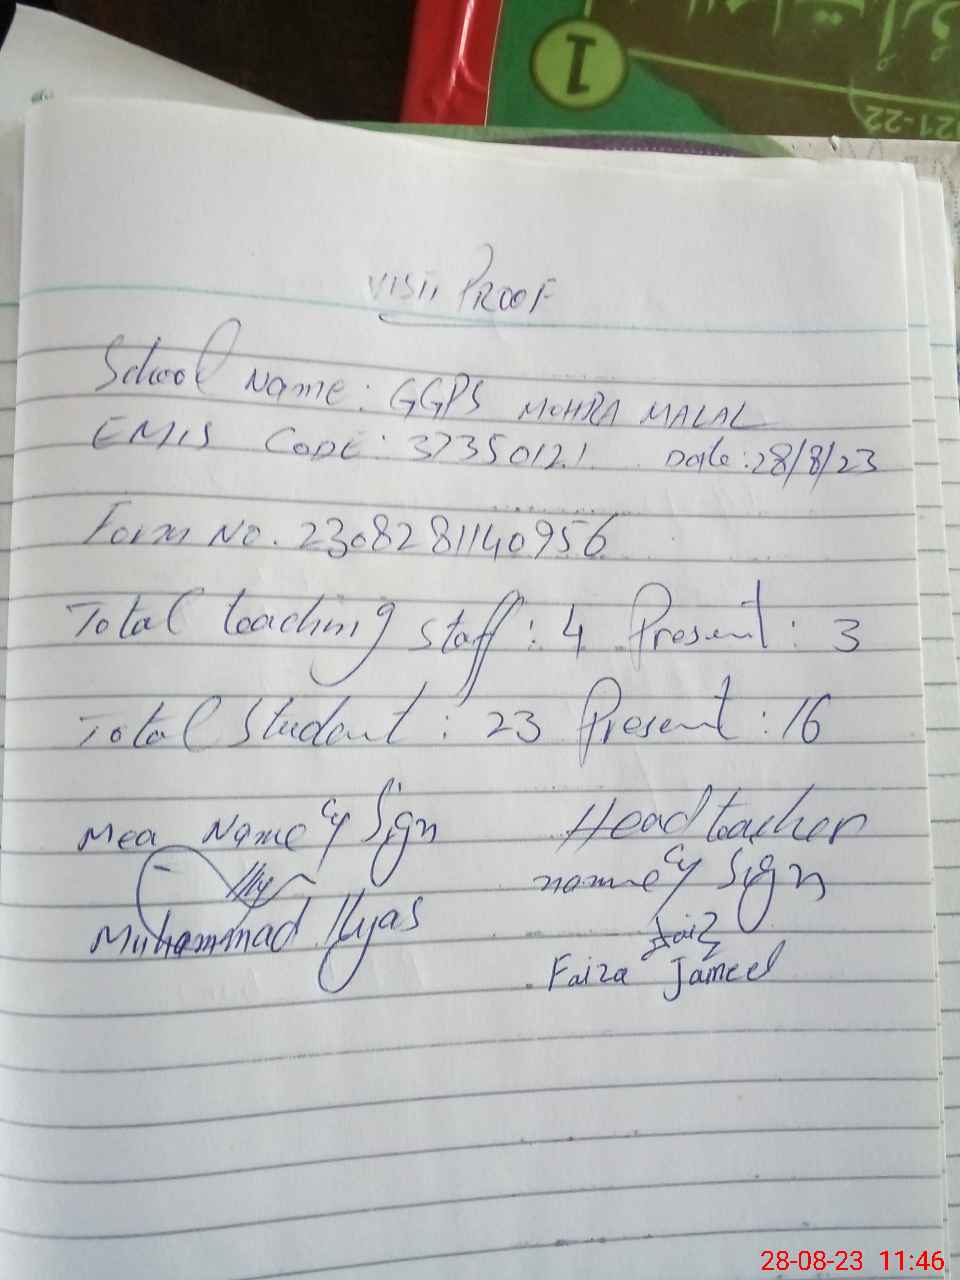 1
21-22
VISIT PROOF
School Name: GGPS MOHRA MALAL
EMIS CODE: 37350121 Date: 28/8/23
Form No. 2308281140956
Total teaching staff: 4 Present: 3
Total Student: 23 Present: 16
Mea Name & Sign
Headteacher
name & Sign
Muhammad Ilyas
Faiz
Faiza Jameel
28-08-23 11:46